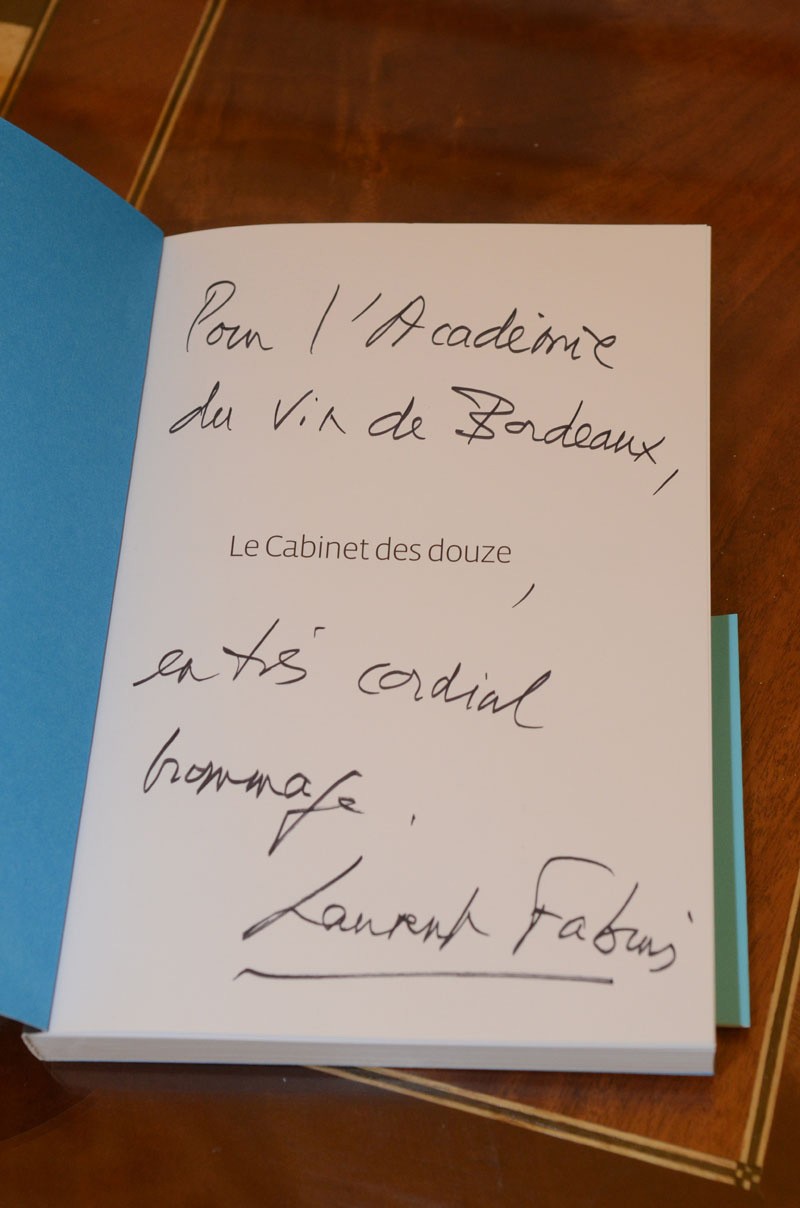 Pour l'Académie
du Vin de Bordeaux,
Le Cabinet des douze,
en très cordial
hommage.
Laurent Fabius